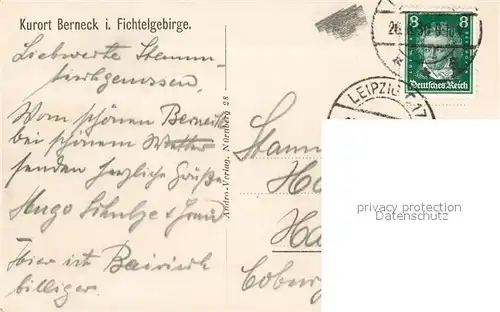 Kurort Berneck i. Fichtelgebirge.
Liebwerte Stamm-
tischgenossen,
Vom schönen Berneck
bei schönem Wetter
senden herzliche Grüße
Hugo Schulze & Frau
Hier ist Bairisch
billiger.
Andro-Verlag, Nürnberg 28
8 8
Deutsches Reich
LEIPZIG C
Stamm
Ha
Coburg
privacy protection
Datenschutz